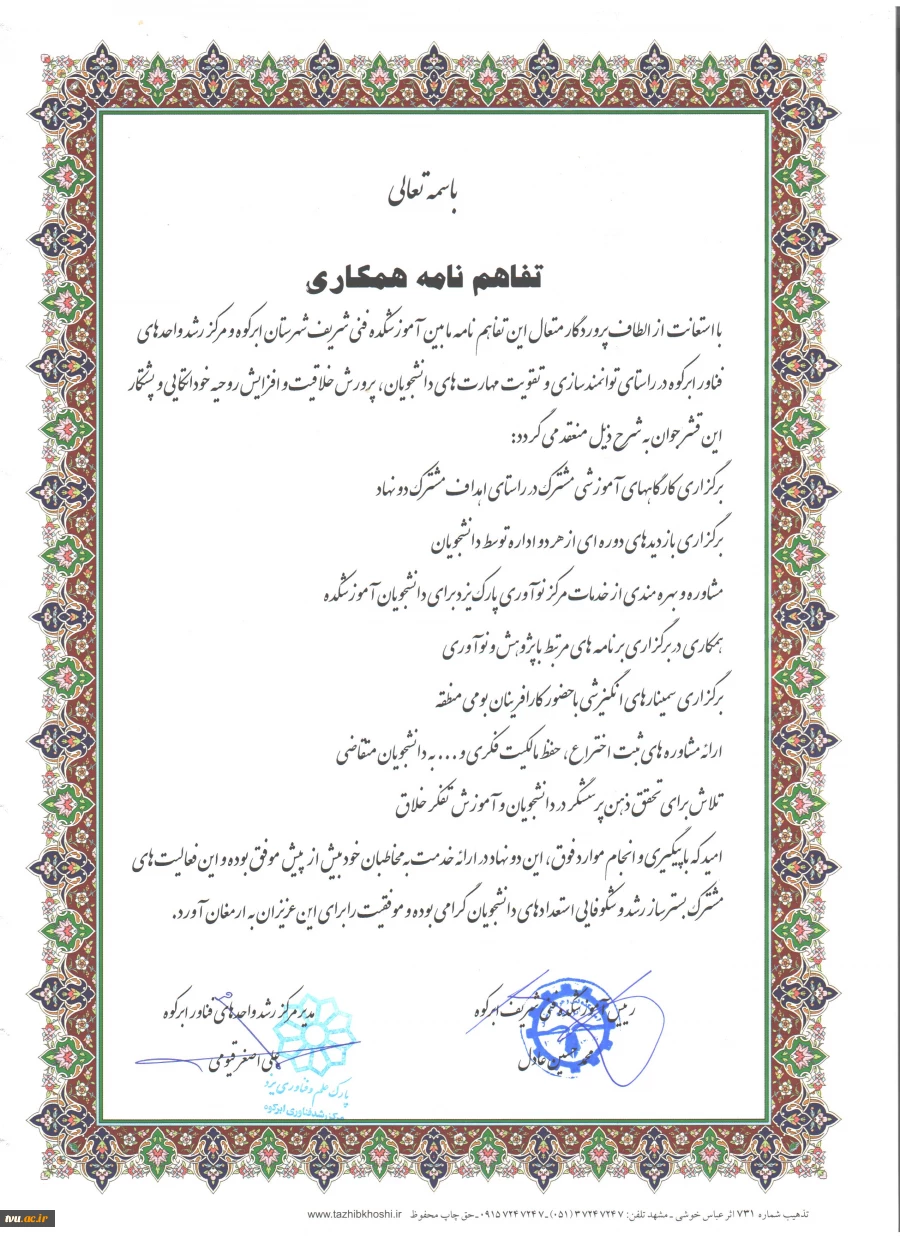 باسمه تعالی
تفاهم نامه همکاری
با استعانت از الطاف پروردگار متعال این تفاهم نامه مابین آموزشکده فنی شریف شهرستان ابرکوه و مرکز رشد واحدهای
فناور ابرکوه در راستای توانمندسازی و تقویت مهارت های دانشجویان، پرورش خلاقیت و افزایش روحیه خوداتکایی و پشتکار
این قشر جوان به شرح ذیل منعقد می گردد:
برگزاری کارگاههای آموزشی مشترک در راستای اهداف مشترک دو نهاد
برگزاری بازدیدهای دوره ای از هر دو اداره توسط دانشجویان
مشاوره و بهره مندی از خدمات مرکز نوآوری پارک یزد برای دانشجویان آموزشکده
همکاری در برگزاری برنامه های مرتبط با پژوهش و نوآوری
برگزاری سمینارهای انگیزشی با حضور کارآفرینان بومی منطقه
ارائه مشاوره های ثبت اختراع، حفظ مالکیت فکری و ... به دانشجویان متقاضی
تلاش برای تحقق ذهن پرسشگر در دانشجویان و آموزش تفکر خلاق
امید که با پیگیری و انجام موارد فوق، این دو نهاد در ارائه خدمت به مخاطبان خود بیش از پیش موفق بوده و این فعالیت های
مشترک بسترساز رشد و شکوفایی استعدادهای دانشجویان گرامی بوده و موفقیت را برای این عزیزان به ارمغان آورد.
رییس آموزشکده فنی شریف ابرکوه
محمد حسین عادل
مدیر مرکز رشد واحدهای فناور ابرکوه
علی اصغر قیومی
پارک علم و فناوری یزد
مرکز رشد فناوری ابرکوه
تذهیب شماره ۷۳۱ اثر عباس خوشی ـ مشهد تلفن: ۳۷۲۴۷۲۴۷ (۰۵۱) ـ ۰۹۱۵۷۲۴۷۲۴۷ ـ حق چاپ محفوظ www.tazhibkhoshi.ir
tvu.ac.ir